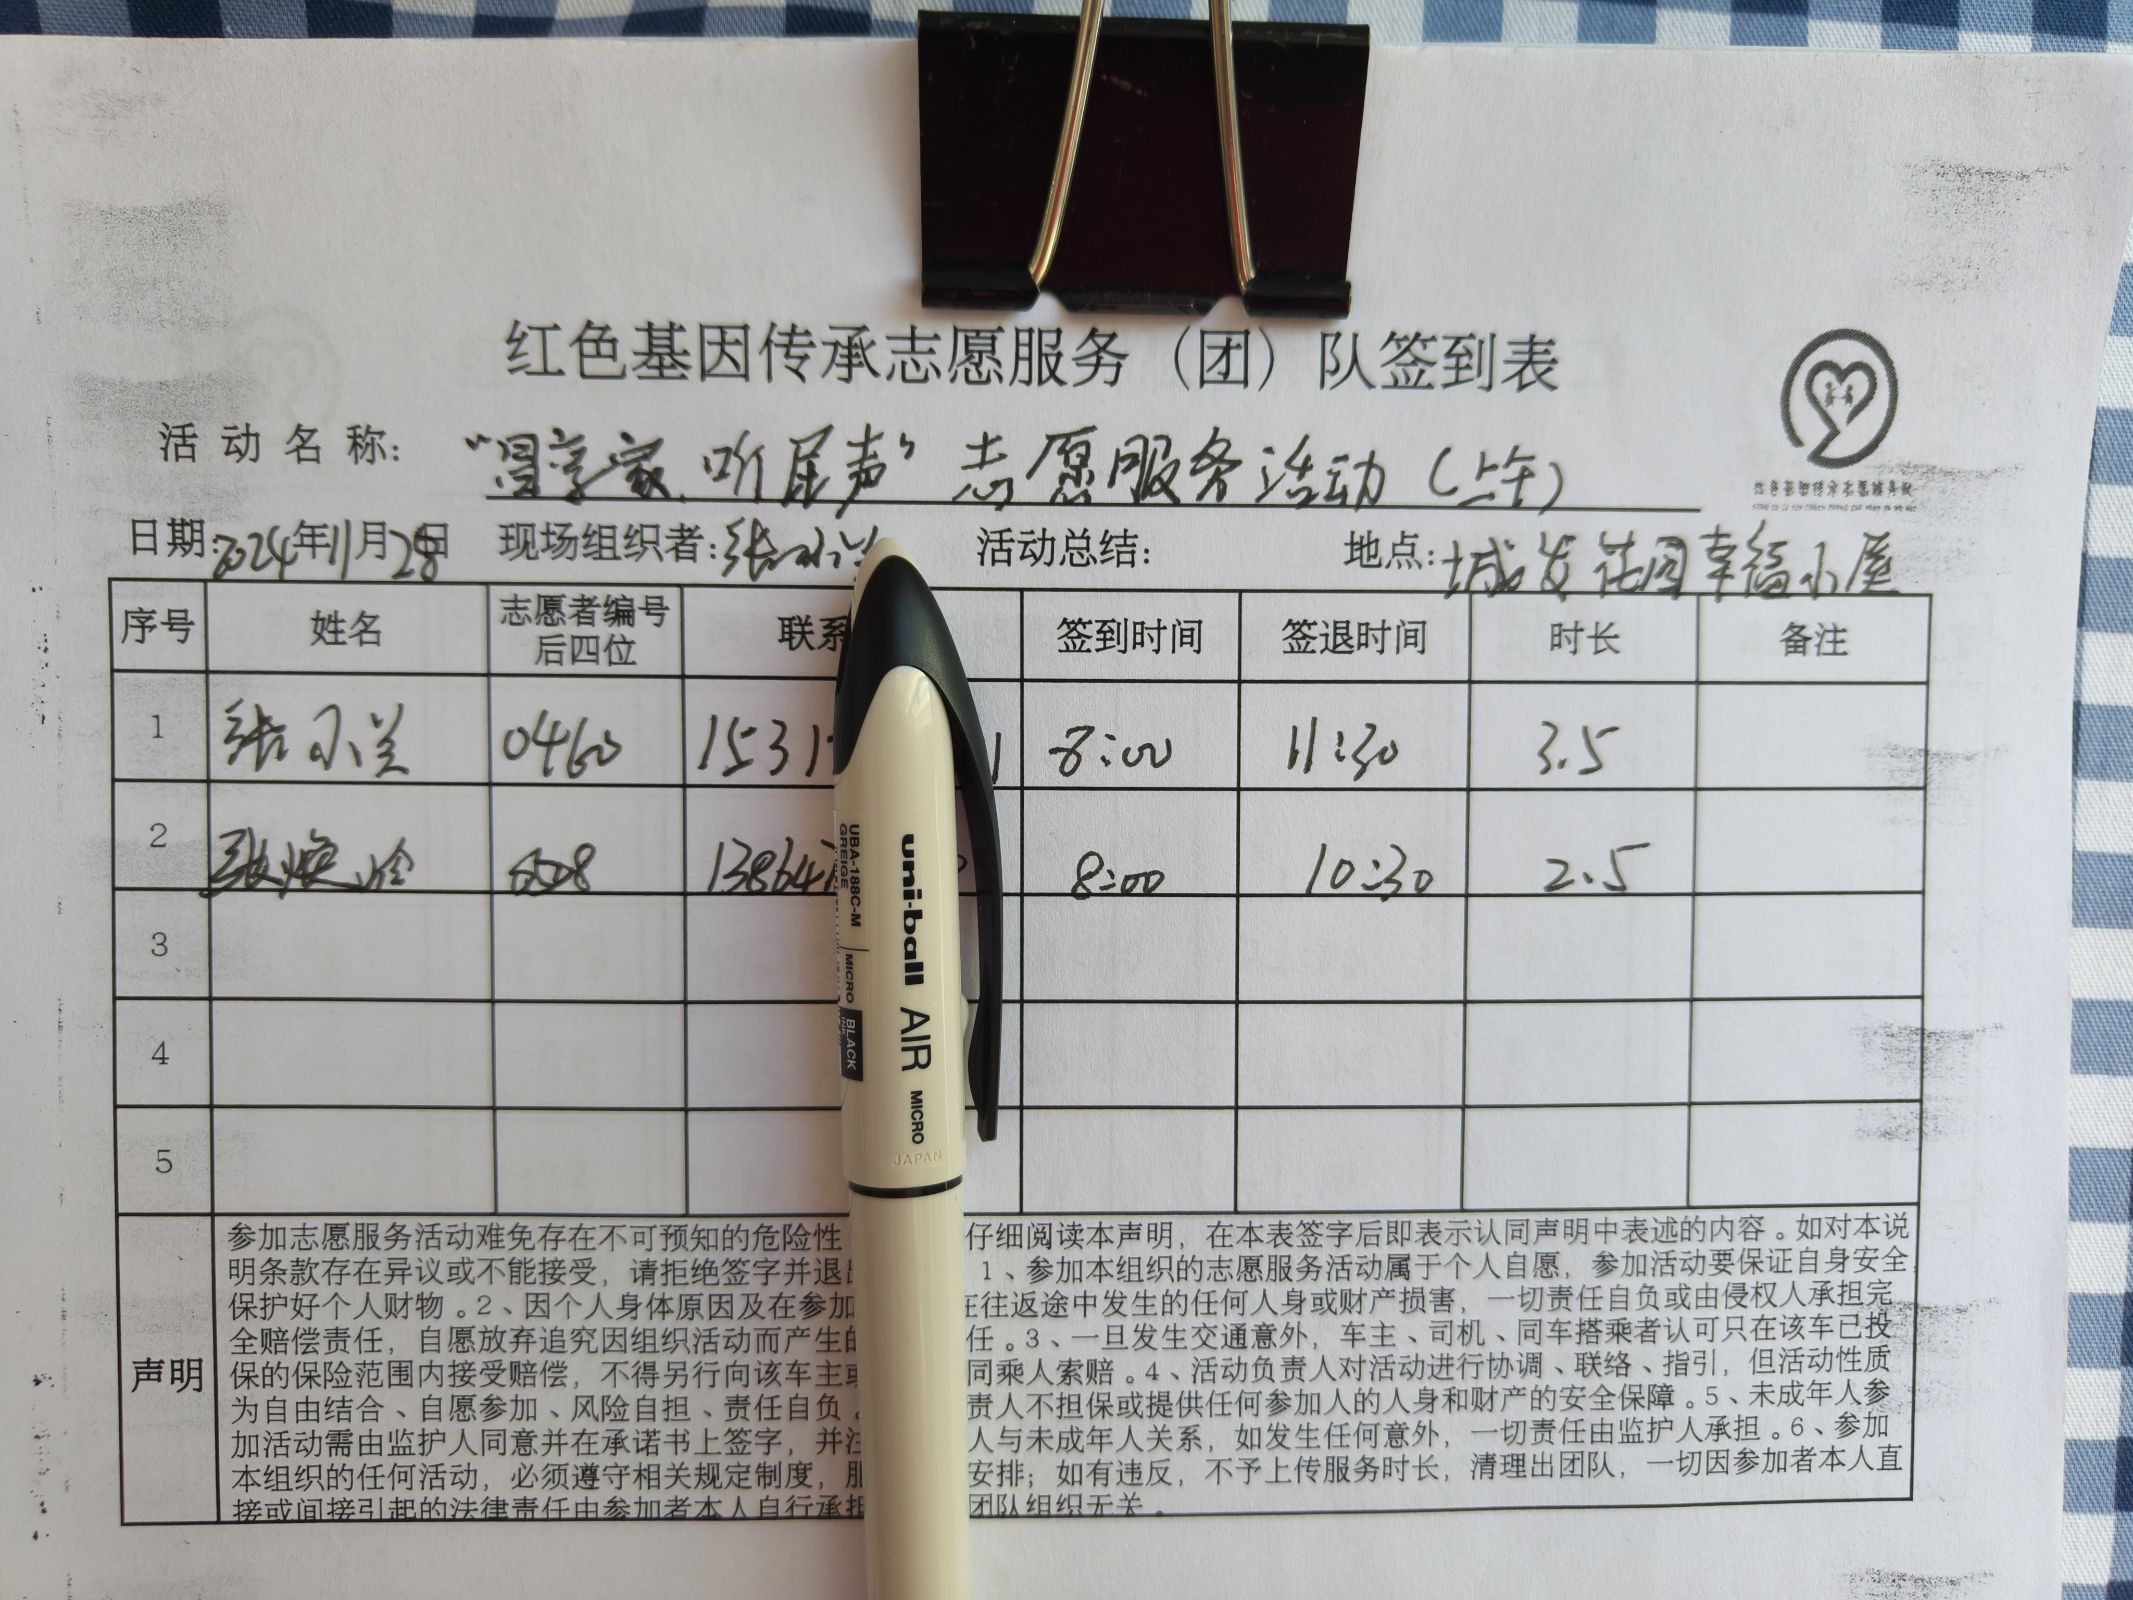 红色基因传承志愿服务（团）队签到表
活动名称： 听民声” 志愿服务活动（上午）
日期：2024年11月28日 现场组织者：张小兰 活动总结： 地点：城发花园幸福小屋
序号 姓名 志愿者编号后四位 联系 签到时间 签退时间 时长 备注
1 张小兰 0460 1531 1 8:00 11:30 3.5
2 8:00 10:30 2.5
3
4
5
声明
参加志愿服务活动难免存在不可预知的危险性 仔细阅读本声明，在本表签字后即表示认同声明中表述的内容。如对本说
明条款存在异议或不能接受，请拒绝签字并退出 1、参加本组织的志愿服务活动属于个人自愿，参加活动要保证自身安全
保护好个人财物。2、因个人身体原因及在参加 在往返途中发生的任何人身或财产损害，一切责任自负或由侵权人承担完
全赔偿责任，自愿放弃追究因组织活动而产生的 任。3、一旦发生交通意外，车主、司机、同车搭乘者认可只在该车已投
保的保险范围内接受赔偿，不得另行向该车主或 同乘人索赔。4、活动负责人对活动进行协调、联络、指引，但活动性质
为自由结合、自愿参加、风险自担、责任自负。 责人不担保或提供任何参加人的人身和财产的安全保障。5、未成年人参
加活动需由监护人同意并在承诺书上签字，并注 人与未成年人关系，如发生任何意外，一切责任由监护人承担。6、参加
本组织的任何活动，必须遵守相关规定制度，服 安排；如有违反，不予上传服务时长，清理出团队，一切因参加者本人直
接或间接引起的法律责任由参加者本人自行承担 团队组织无关。
uni-ball AIR MICRO
JAPAN
UBA-188C-M
GREIGE
MICRO
BLACK
INK